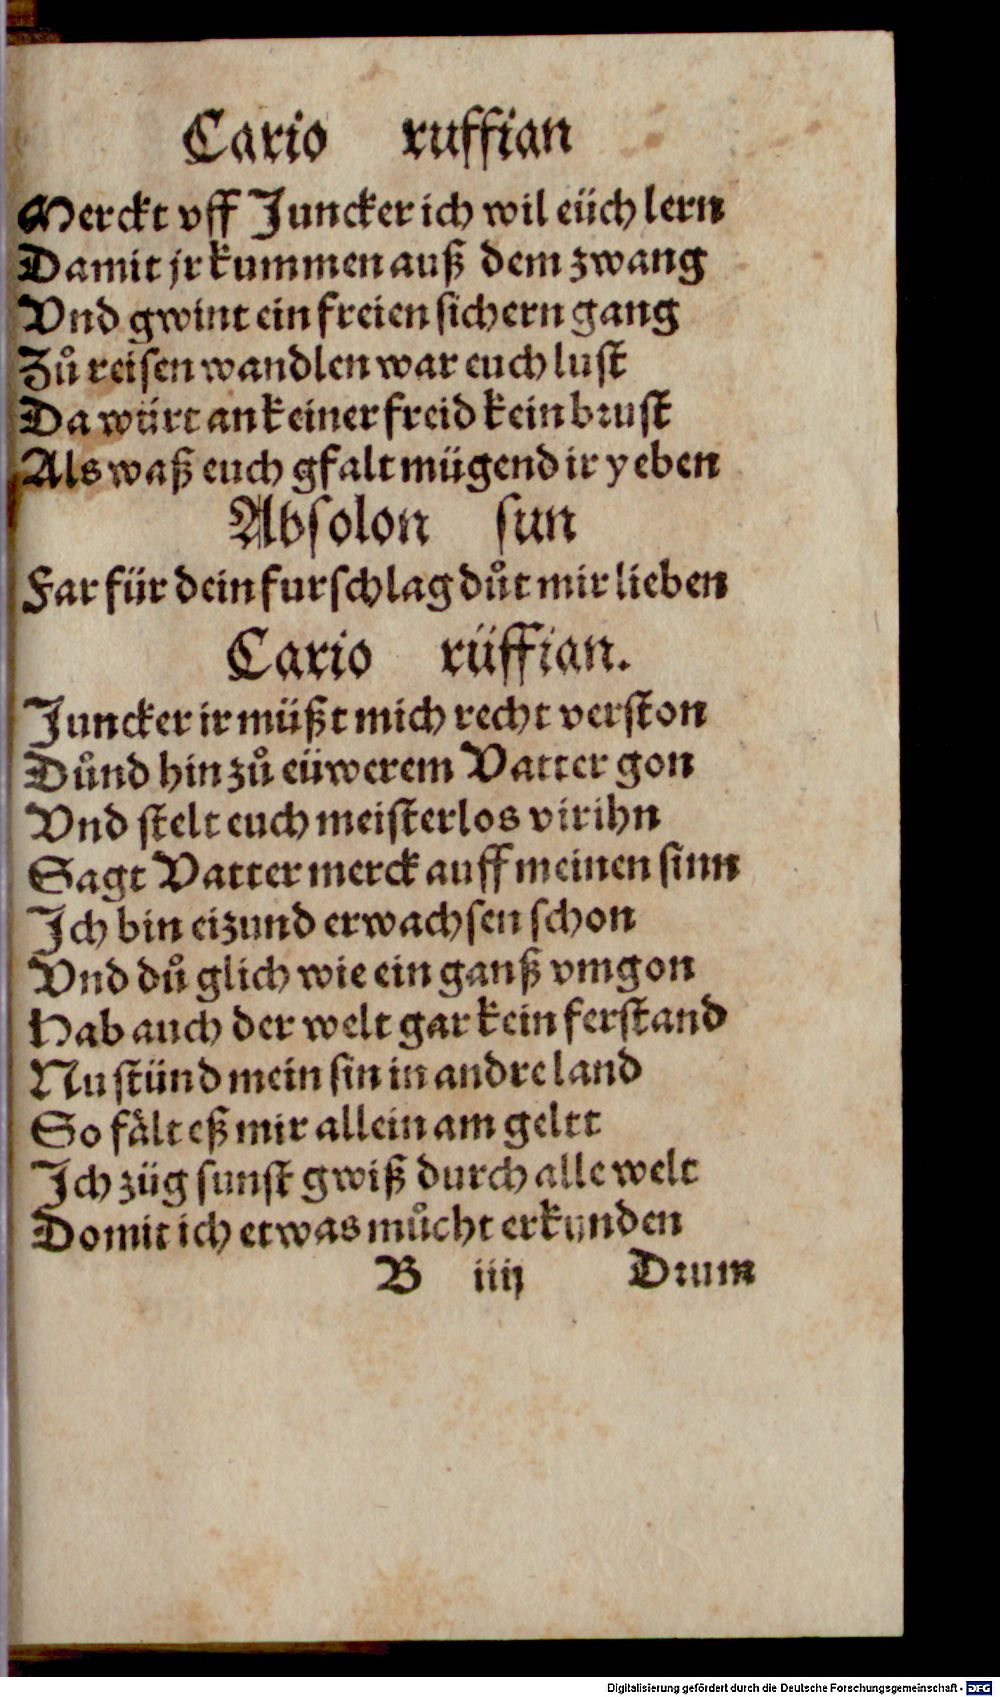 Cario ruffian
Merckt vff Juncker ich wil eüch lern
Damit jr kummen auß dem zwang
Vnd gwint ein freien sichern gang
Zů reisen wandlen war euch lust
Da würt an keiner freid kein brust
Als waß euch gfalt mügend ir yeben
Absolon sun
Far für dein furschlag důt mir lieben
Cario rüffian.
Juncker ir müßt mich recht verston
Důnd hin zů eüwerem Vatter gon
Vnd stelt euch meisterlos vir ihn
Sagt Vatter merck auff meinen sinn
Ich bin eizund erwachsen schon
Vnd dů glich wie ein ganß vmgon
Hab auch der welt gar kein ferstand
Nu stünd mein sin in andre land
So fålt eß mir allein am geltt
Ich züg sunst gwiß durch alle welt
Domit ich etwas můcht erkunden
B iiij Drum
Digitalisierung gefördert durch die Deutsche Forschungsgemeinschaft - DFG